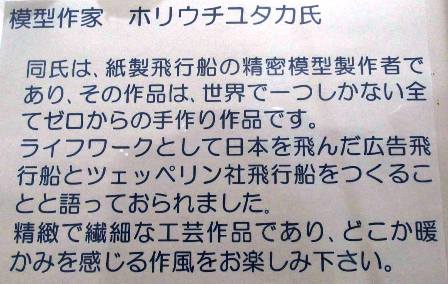 模型作家　ホリウチユタカ氏
同氏は、紙製飛行船の精密模型製作者で
あり、その作品は、世界で一つしかない全
てゼロからの手作り作品です。
ライフワークとして日本を飛んだ広告飛
行船とツェッペリン社飛行船をつくるこ
とと語っておられました。
精緻で繊細な工芸作品であり、どこか暖
かみを感じる作風をお楽しみ下さい。